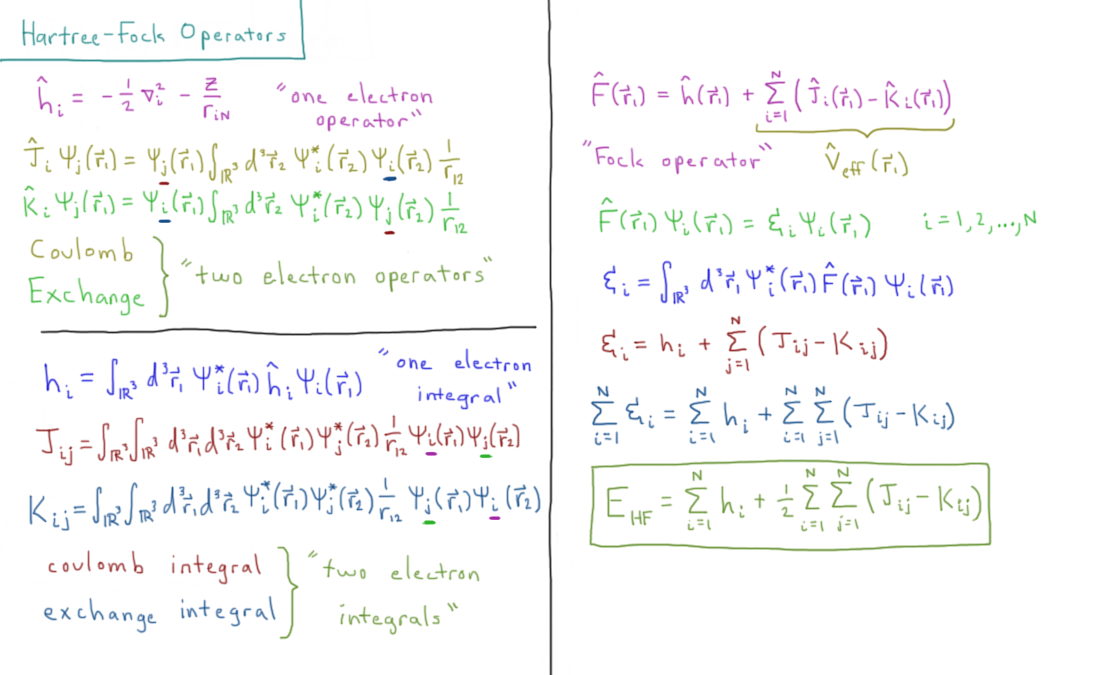 Hartree-Fock Operators
ĥᵢ = -½ ∇ᵢ² - Z/r_iN "one electron
operator"
Ĵᵢ Ψⱼ(r⃗₁) = Ψⱼ(r⃗₁) ∫_ℝ³ d³r⃗₂ Ψᵢ*(r⃗₂) Ψᵢ(r⃗₂) 1/r₁₂
K̂ᵢ Ψⱼ(r⃗₁) = Ψᵢ(r⃗₁) ∫_ℝ³ d³r⃗₂ Ψᵢ*(r⃗₂) Ψⱼ(r⃗₂) 1/r₁₂
Coulomb
Exchange } "two electron operators"
hᵢ = ∫_ℝ³ d³r⃗₁ Ψᵢ*(r⃗₁) ĥᵢ Ψᵢ(r⃗₁) "one electron
integral"
Jᵢⱼ = ∫_ℝ³ ∫_ℝ³ d³r⃗₁ d³r⃗₂ Ψᵢ*(r⃗₁) Ψⱼ*(r⃗₂) 1/r₁₂ Ψᵢ(r⃗₁) Ψⱼ(r⃗₂)
Kᵢⱼ = ∫_ℝ³ ∫_ℝ³ d³r⃗₁ d³r⃗₂ Ψᵢ*(r⃗₁) Ψⱼ*(r⃗₂) 1/r₁₂ Ψⱼ(r⃗₁) Ψᵢ(r⃗₂)
coulomb integral } "two electron
exchange integral integrals"
F̂(r⃗₁) = ĥ(r⃗₁) + Σ_{i=1}^{N} (Ĵᵢ(r⃗₁) - K̂ᵢ(r⃗₁))
"Fock operator" V̂_eff(r⃗₁)
F̂(r⃗₁) Ψᵢ(r⃗₁) = Ɛᵢ Ψᵢ(r⃗₁) i = 1, 2, ..., N
Ɛᵢ = ∫_ℝ³ d³r⃗₁ Ψᵢ*(r⃗₁) F̂(r⃗₁) Ψᵢ(r⃗₁)
Ɛᵢ = hᵢ + Σ_{j=1}^{N} (Jᵢⱼ - Kᵢⱼ)
Σ_{i=1}^{N} Ɛᵢ = Σ_{i=1}^{N} hᵢ + Σ_{i=1}^{N} Σ_{j=1}^{N} (Jᵢⱼ - Kᵢⱼ)
E_HF = Σ_{i=1}^{N} hᵢ + ½ Σ_{i=1}^{N} Σ_{j=1}^{N} (Jᵢⱼ - Kᵢⱼ)